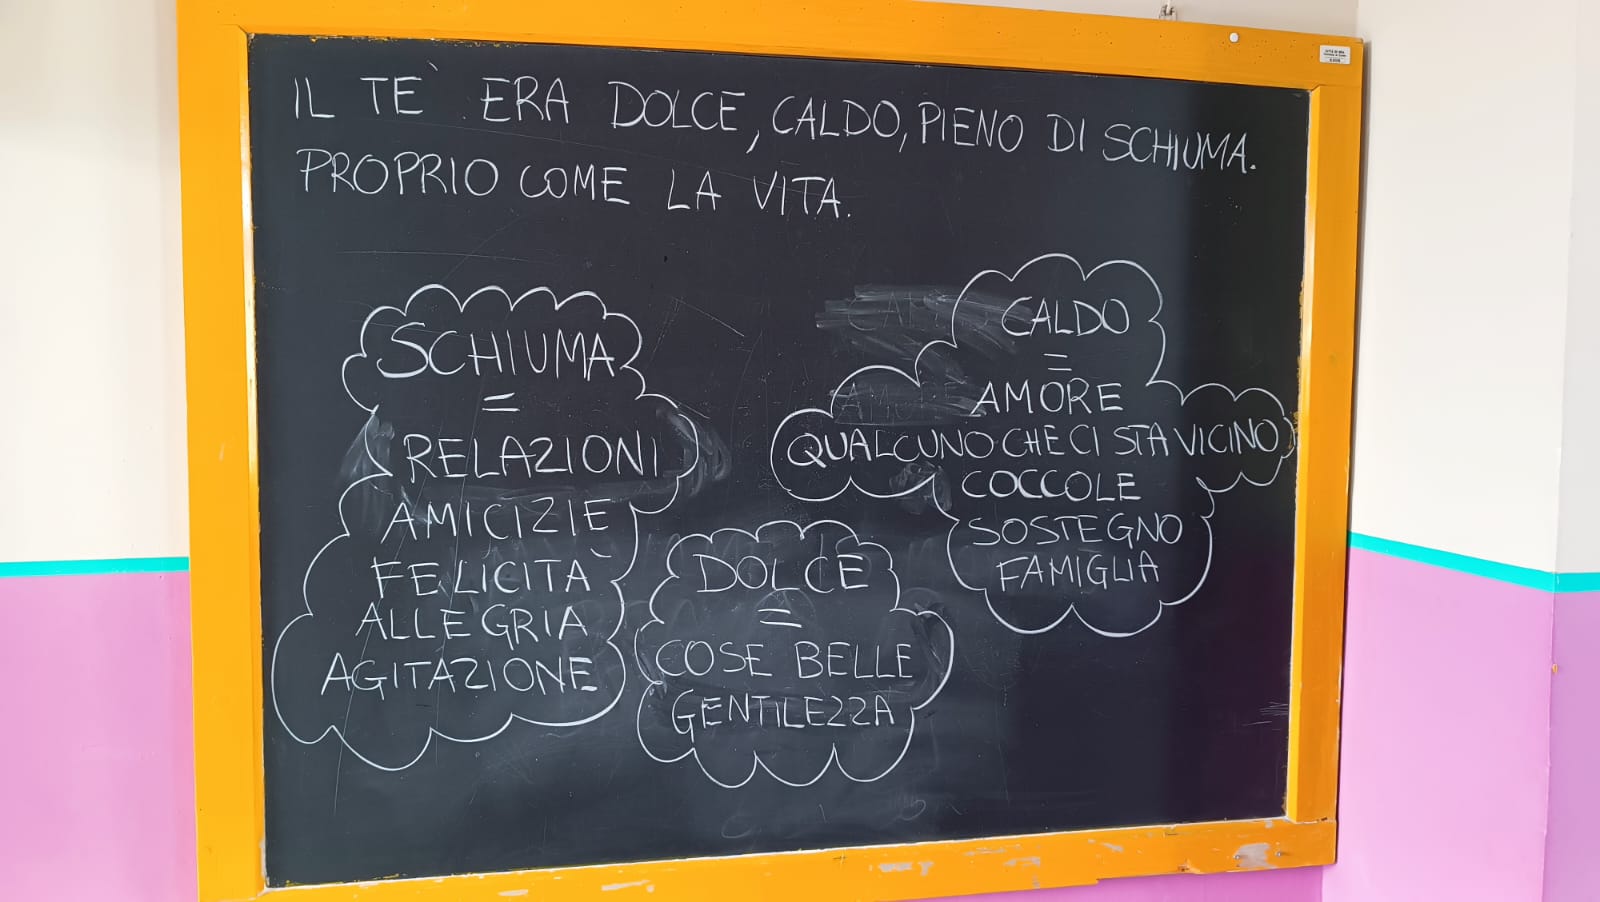 IL TE` ERA DOLCE, CALDO, PIENO DI SCHIUMA.
PROPRIO COME LA VITA.
SCHIUMA
=
RELAZIONI
AMICIZIE
FELICITÀ
ALLEGRIA
AGITAZIONE
DOLCE
=
COSE BELLE
GENTILEZZA
CALDO
=
AMORE
QUALCUNO CHE CI STA VICINO
COCCOLE
SOSTEGNO
FAMIGLIA